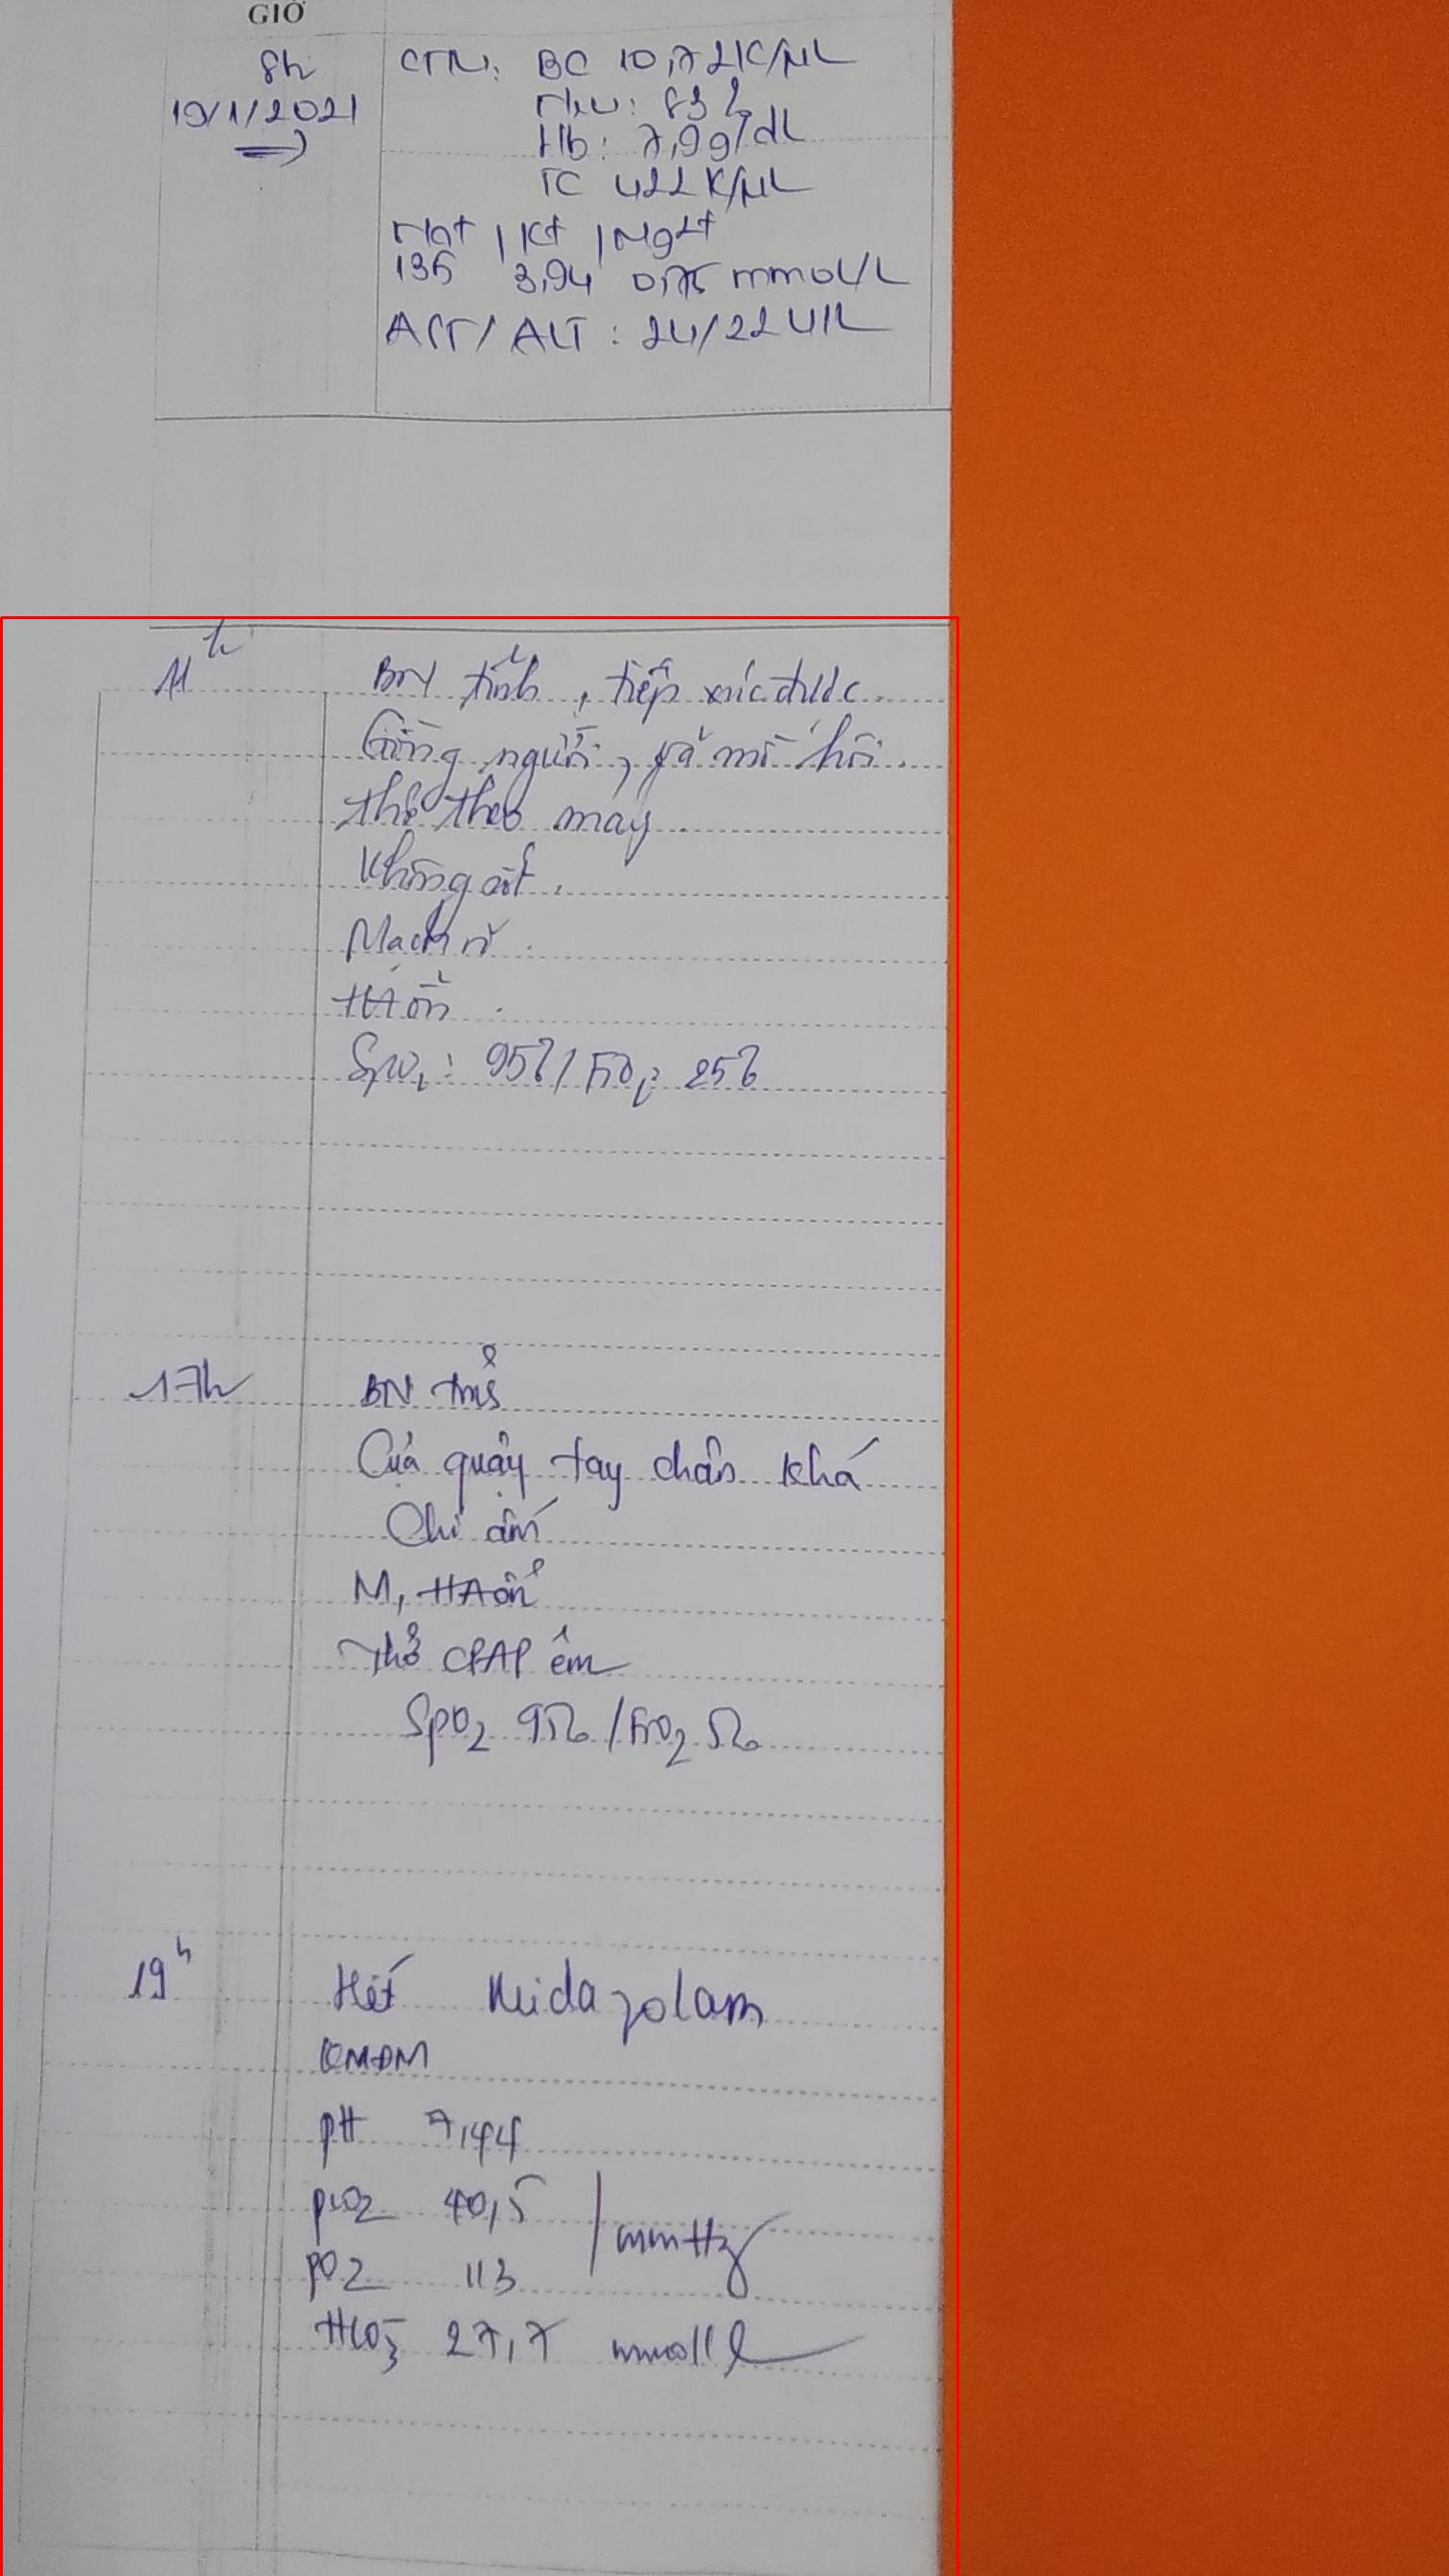 GIỜ
8h
19/1/2021
CTM: BC 10,72K/µL
Neu: 83%
Hb: 7,9g/dL
TC 422K/µL
Na+ | K+ | Mg2+
135 3,94 0,75 mmol/L
AST/ALT: 24/22 U/L
11h
BN tỉnh, tiếp xúc được.
Gồng người, vã mồ hôi.
thở theo máy.
Không sốt.
Mạch rõ.
HA ổn.
SpO2: 95%/FiO2: 25%
17h
BN tỉnh
Cựa quậy tay chân khá
Chi ấm
M, HA ổn
Thở CPAP êm
SpO2 95% / FiO2
19h
Hết Midazolam
KMĐM
pH 7,44
pCO2 40,5
mmHg
pO2 113
HCO3- 27,7 mmol/l